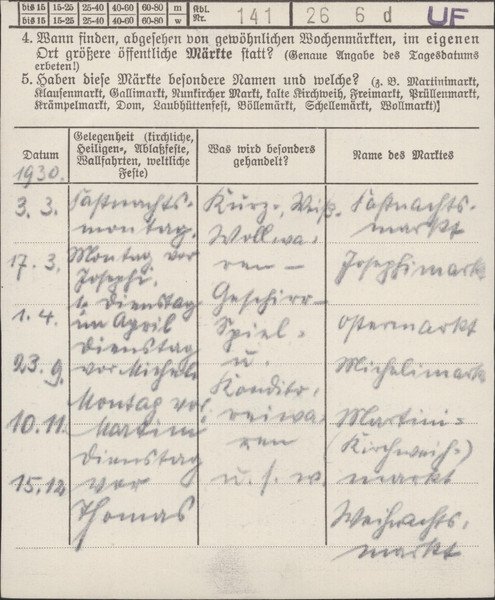 bis 15 15-25 25-40 40-60 60-80 m Abl. Nr. 141 26 6 d UF
bis 15 15-25 25-40 40-60 60-80 w
4. Wann finden, abgesehen von gewöhnlichen Wochenmärkten, im eigenen
Ort größere öffentliche Märkte statt? (Genaue Angabe des Tagesdatums
erbeten!)
5. Haben diese Märkte besondere Namen und welche? (z. B. Martinimarkt,
Klausenmarkt, Gallimarkt, Nunkircher Markt, kalte Kirchweih, Freimarkt, Prüllenmarkt,
Krämpelmarkt, Dom, Laubhüttenfest, Böllemärkt, Schellemärkt, Wollmarkt)]
Datum
1930.
Gelegenheit (kirchliche,
Heiligen-, Ablaßfeste,
Wallfahrten, weltliche
Feste)
Was wird besonders
gehandelt?
Name des Marktes
3. 3. Fastnachts- Kurz-, Weiß- Fastnachts-
montag. Wollwa- markt
17. 3. Montag vor ren- Josephimarkt
Josephi. Geschirr-
1. 4. 1. Dienstag Spiel- Ostermarkt
im April u.
23. 9. Dienstag Konditо- Michelimarkt
vor Micheli reiwa-
10. 11. Montag vor ren Martini-
Martini (Kirchweih-)
15. 12 Dienstag u. s. w. markt
vor
Thomas Weihnachts-
markt